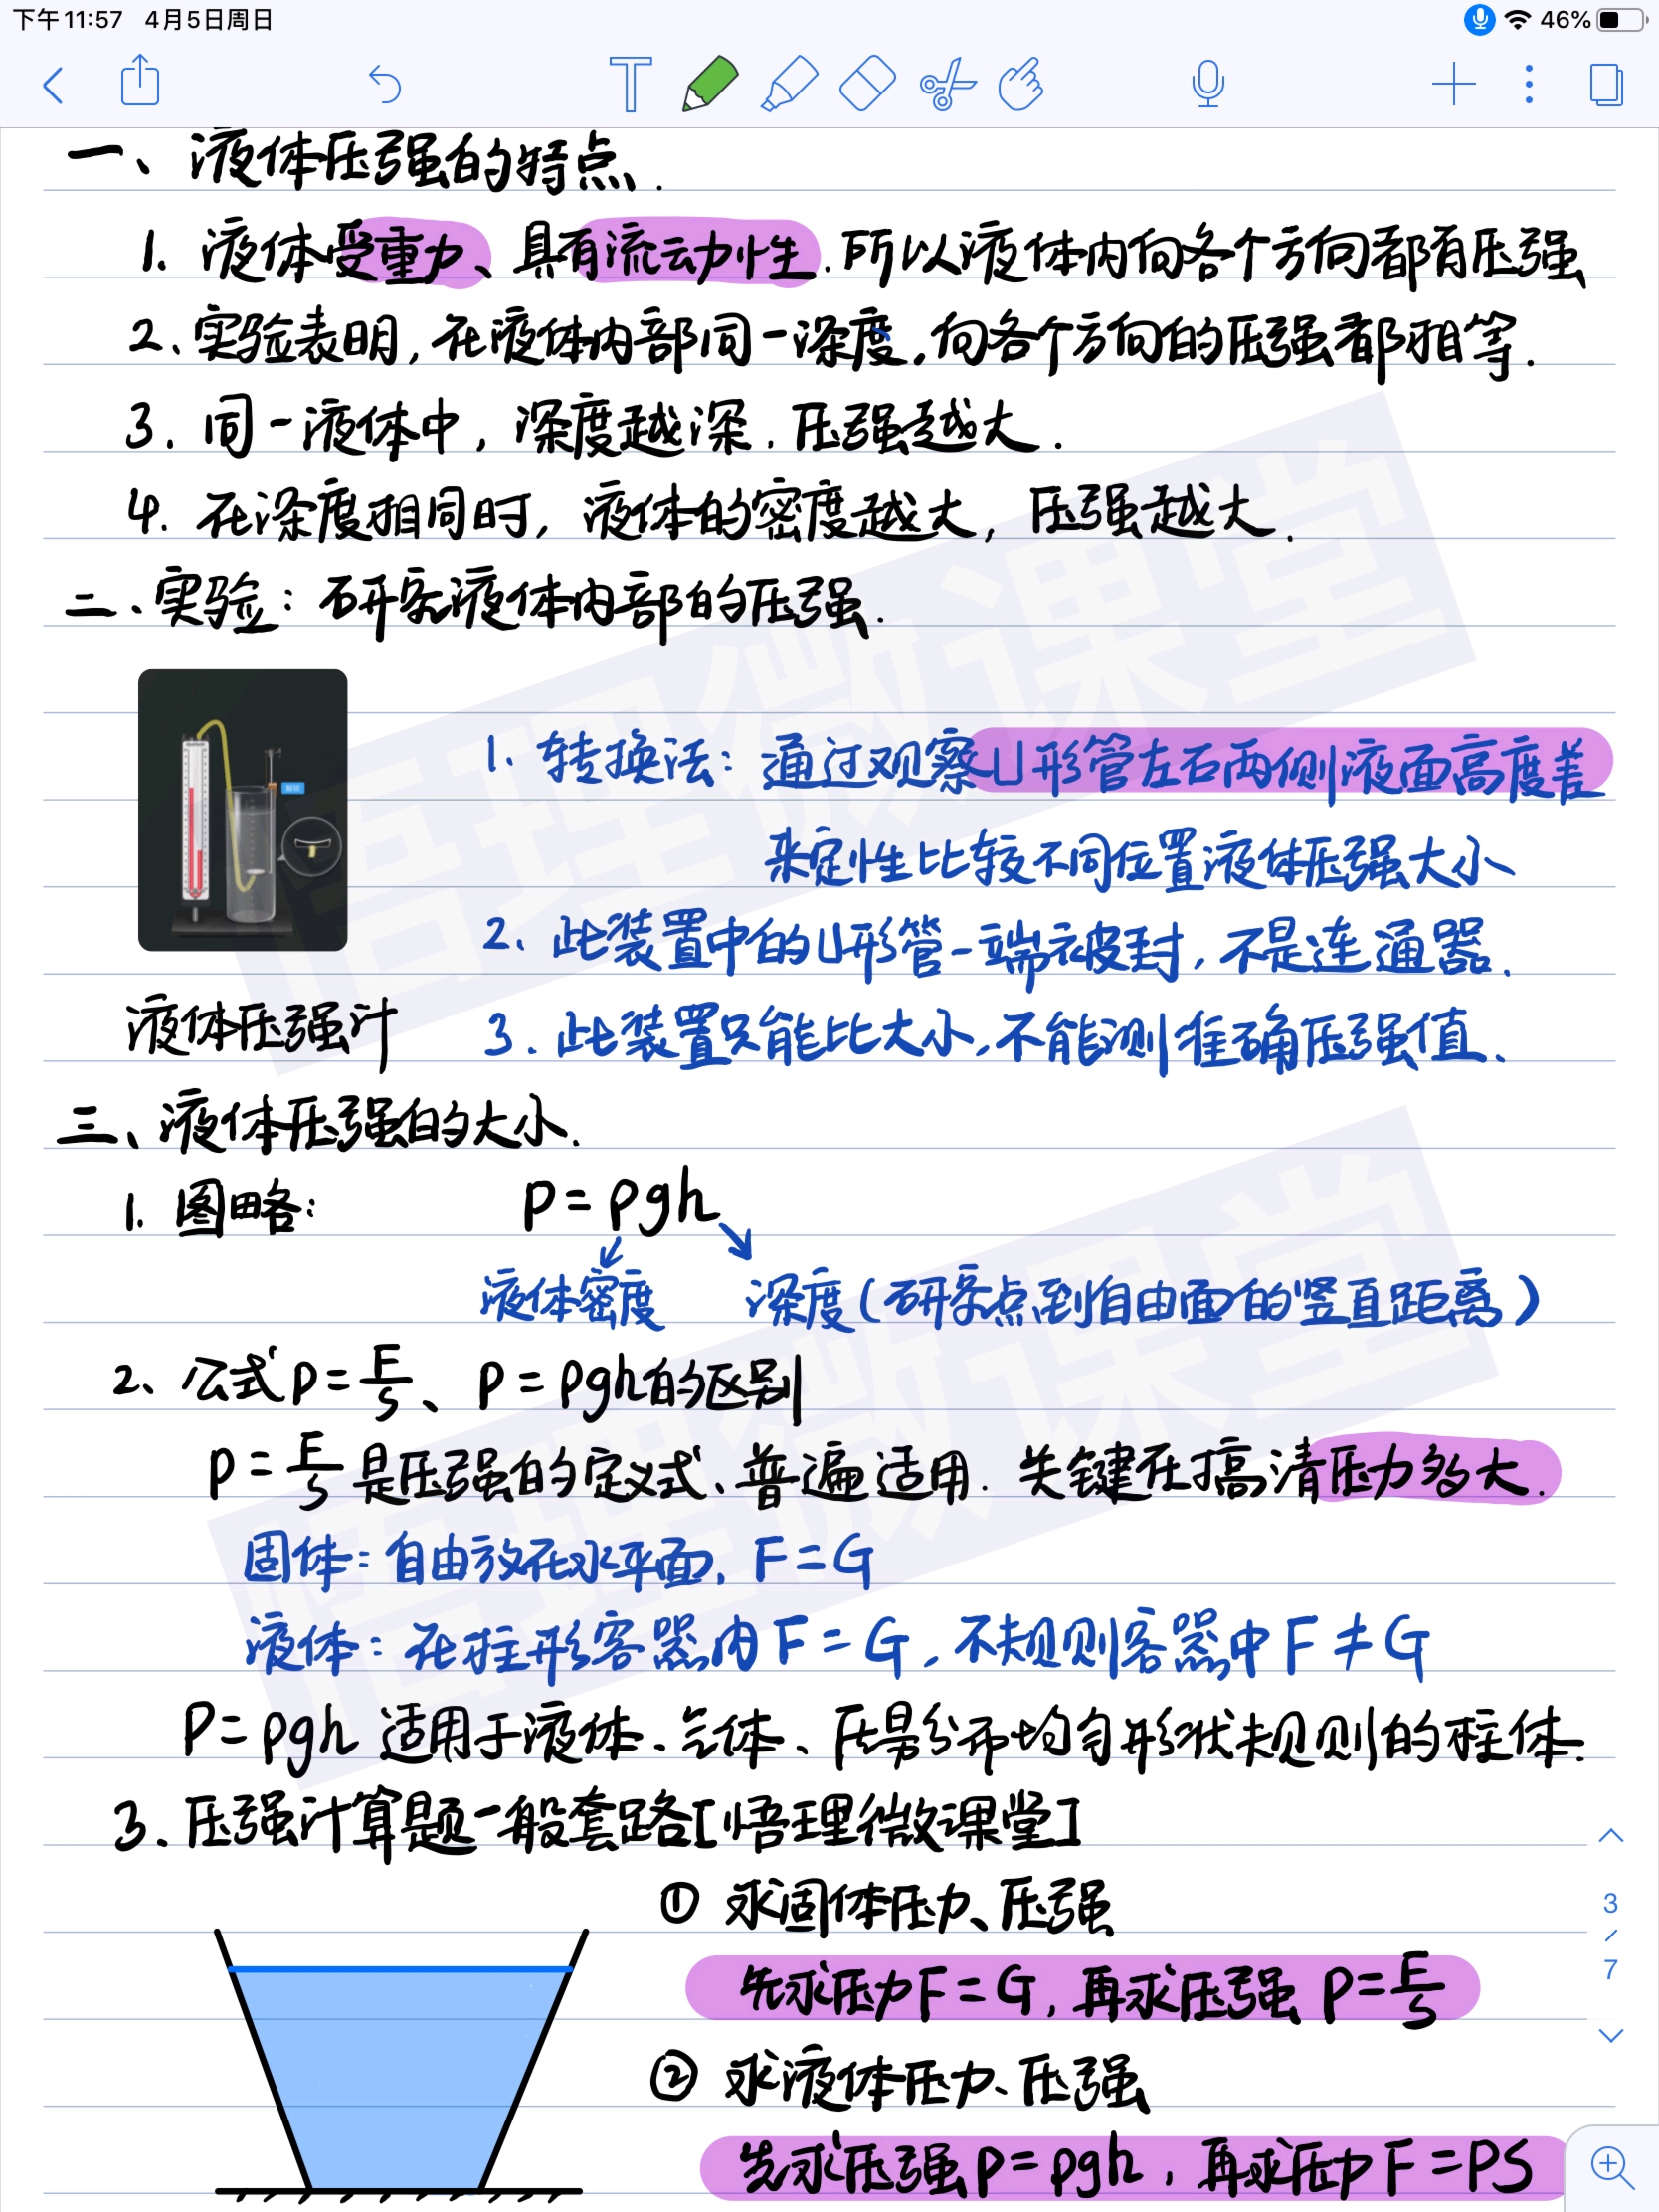 下午11:57 4月5日周日
46%
一、液体压强的特点.
1. 液体受重力、具有流动力性.所以液体内向各个方向都有压强
2、实验表明,在液体内部同一深度,向各个方向的压强都相等.
3. 同一液体中,深度越深.压强越大.
4. 在深度相同时,液体的密度越大,压强越大.
二、实验:研究液体内部的压强.
1. 转换法:通过观察U形管左右两侧液面高度差
来定性比较不同位置液体压强大小
2、此装置中的U形管一端被封,不是连通器.
液体压强计
3.此装置只能比大小,不能测准确压强值.
三、液体压强的大小.
1. 图略:
P=ρgh
液体密度
深度(研究点到自由面的竖直距离)
2、公式P=F/S、P=ρgh的区别
P=F/S是压强的定义式、普遍适用.关键在搞清压力多大.
固体:自由放在水平面,F=G
液体:在柱形容器内F=G,不规则容器中F≠G
P=ρgh适用于液体、气体、质量分布均匀形状规则的柱体.
3.压强计算题一般套路[悟理微课堂]
① 求固体压力、压强
先求压力F=G,再求压强P=F/S
② 求液体压力、压强
先求压强P=ρgh,再求压力F=PS
3/7
悟理微课堂
悟理微课堂